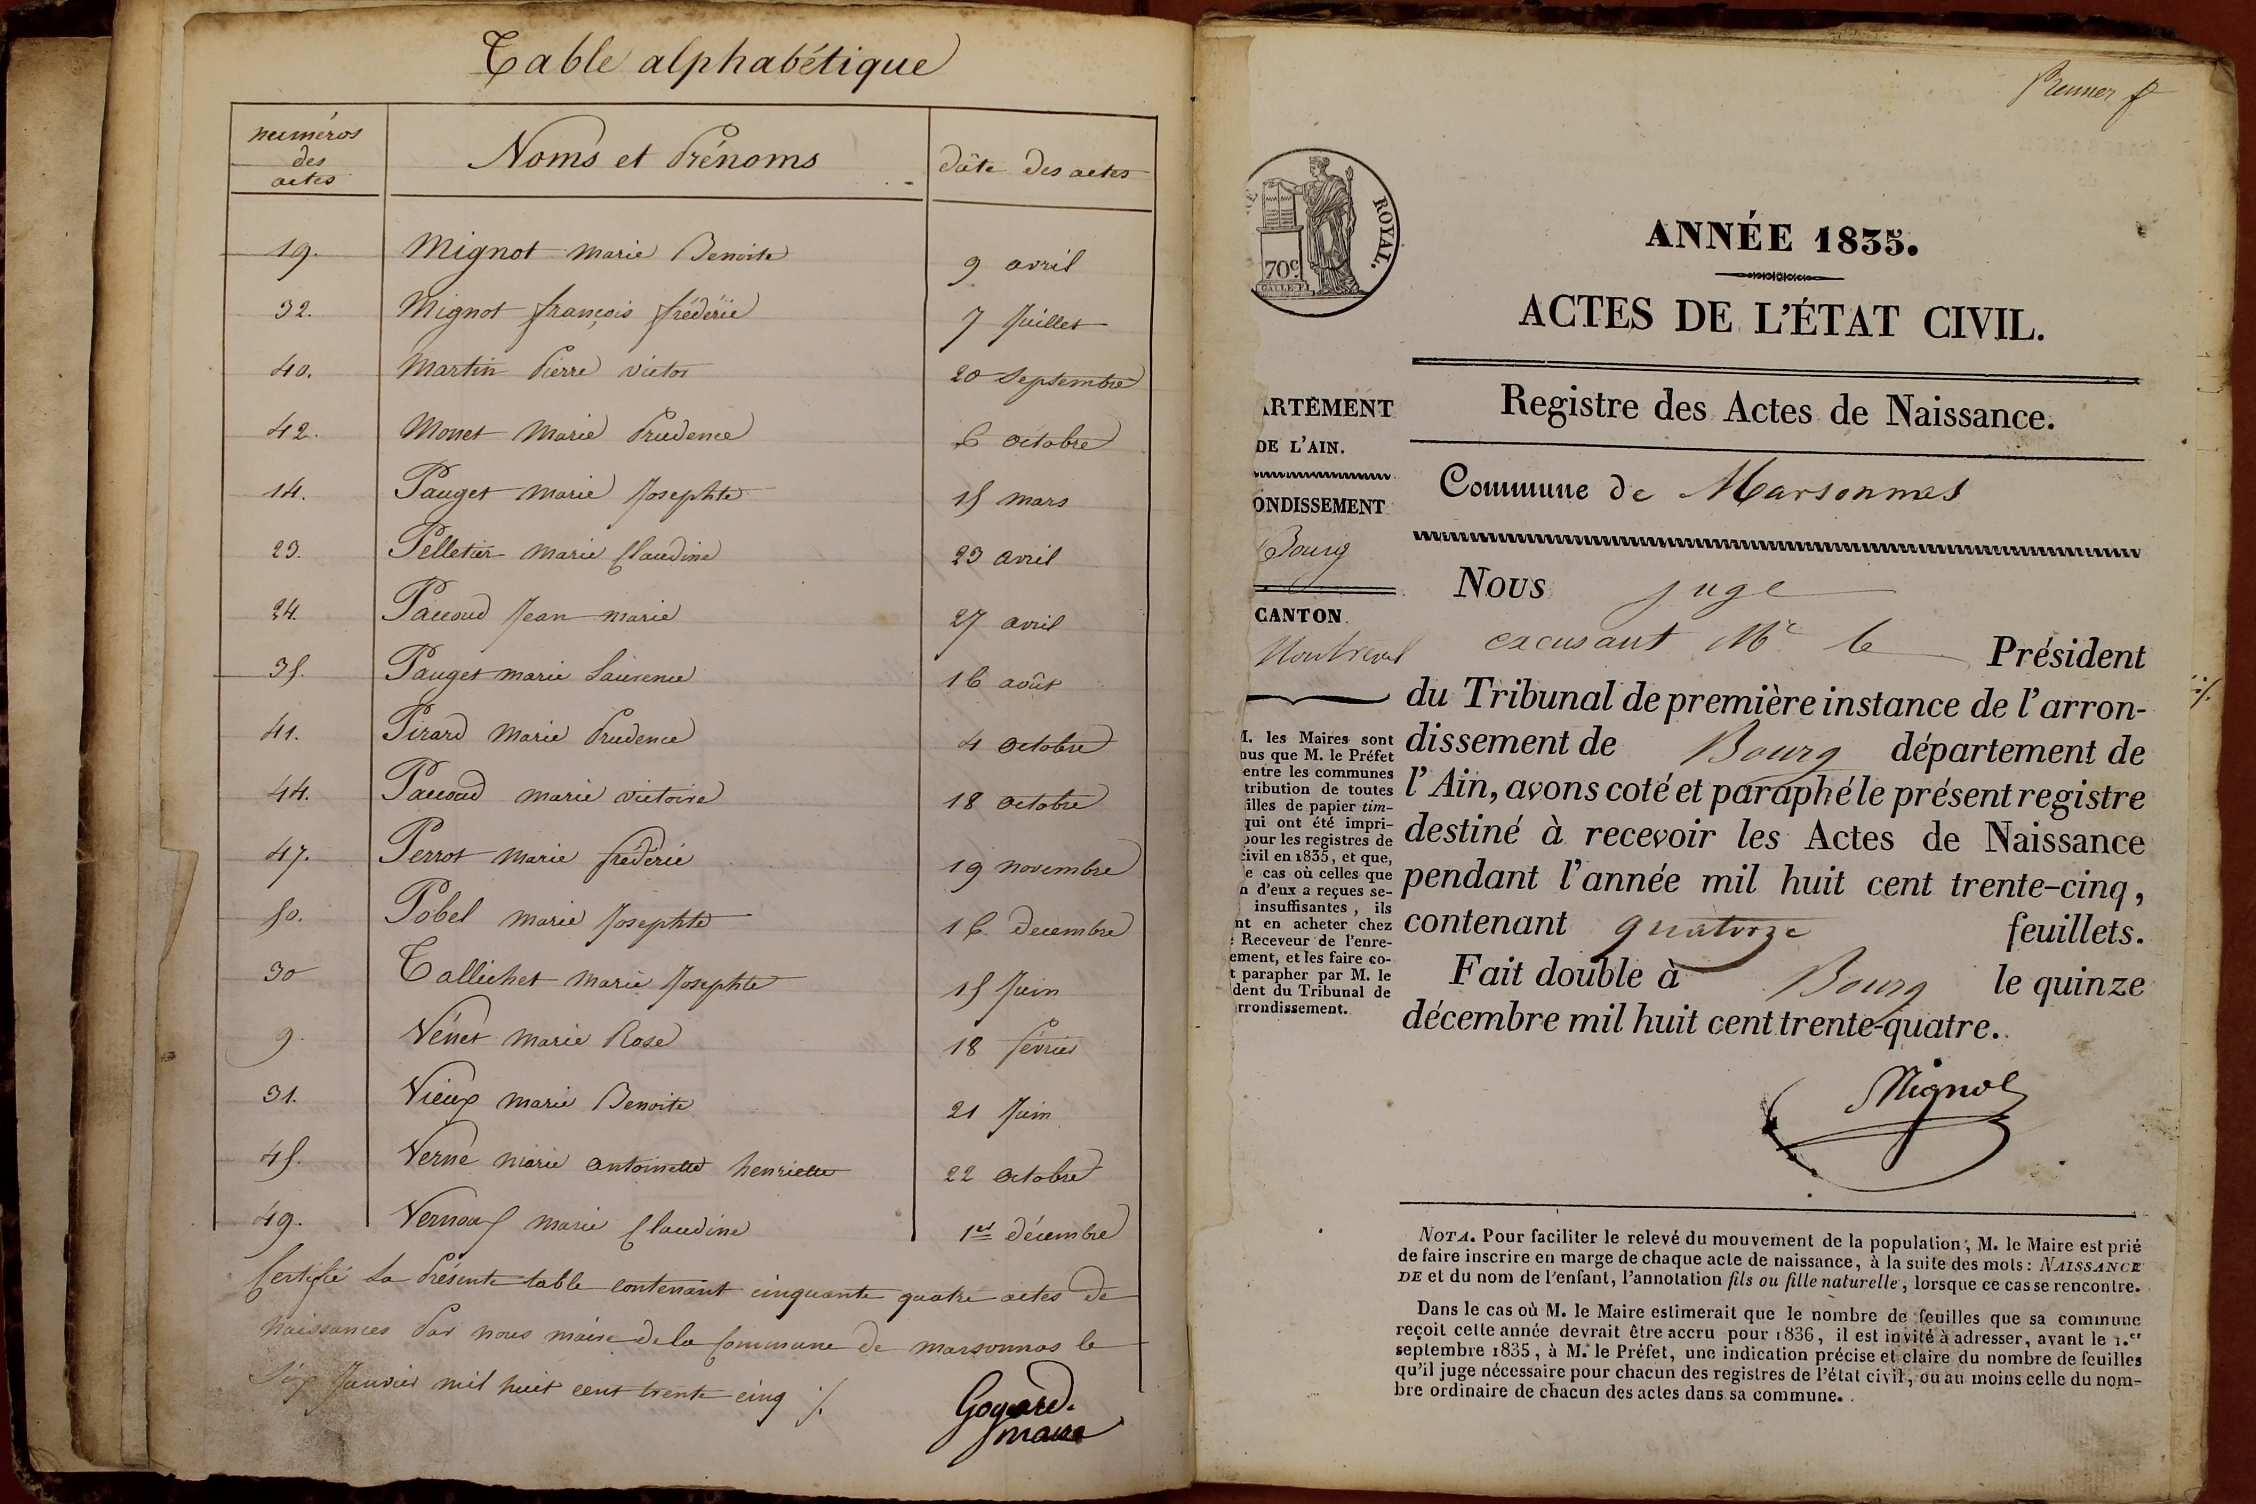 Table alphabétique
numéros
des
actes
Noms et Prénoms
date des actes
19. Mignot marie Benoite 9 avril
32. Mignot françois frédéric 7 Juillet
40. Martin Pierre victor 20 Septembre
42. Monet Marie Prudence 6 octobre
14. Pauget marie Josephte 15 mars
23. Pelletier marie Claudine 23 avril
24. Paccoud Jean marie 27 avril
35. Pauget marie Laurence 16 août
41. Pirard Marie Prudence 4 octobre
44. Paccoud marie victoire 18 octobre
47. Perrot marie frédéric 19 novembre
50. Pobel marie Josephte 16 decembre
30 Tallichet marie Josephte 15 Juin
9. Vénet marie Rose 18 février
31. Vieux marie Benoite 21 Juin
45. Verne marie antoinette henriette 22 octobre
49. Vernoux marie Claudine 1er décembre
Certifié La Présente table contenant cinquante quatre actes de
naissances Par nous maire de la Commune de marsonnas le
Six Janvier mil huit cent trente cinq ./.
Goyard.
maire
Premier f
ROYAL.
70c.
ANNÉE 1835.
ACTES DE L'ÉTAT CIVIL.
Registre des Actes de Naissance.
Commune de Marsonnas
ARTEMENT
DE L'AIN.
ONDISSEMENT
Bourg
CANTON
Montrevel
M. les Maires sont
nus que M. le Préfet
entre les communes
tribution de toutes
illes de papier tim-
qui ont été impri-
pour les registres de
civil en 1835, et que,
e cas où celles que
n d'eux a reçues se-
insuffisantes, ils
nt en acheter chez
Receveur de l'enre-
ement, et les faire co-
t parapher par M. le
dent du Tribunal de
rrondissement.
Nous juge
excusant Mr le Président
du Tribunal de première instance de l'arron-
dissement de Bourg département de
l'Ain, avons coté et paraphé le présent registre
destiné à recevoir les Actes de Naissance
pendant l'année mil huit cent trente-cinq,
contenant quatorze feuillets.
Fait double à Bourg le quinze
décembre mil huit cent trente-quatre.
Mignot
NOTA. Pour faciliter le relevé du mouvement de la population, M. le Maire est prié
de faire inscrire en marge de chaque acte de naissance, à la suite des mots: NAISSANCE
DE et du nom de l'enfant, l'annotation fils ou fille naturelle, lorsque ce cas se rencontre.
Dans le cas où M. le Maire estimerait que le nombre de feuilles que sa commune
reçoit cette année devrait être accru pour 1836, il est invité à adresser, avant le 1.er
septembre 1835, à M. le Préfet, une indication précise et claire du nombre de feuilles
qu'il juge nécessaire pour chacun des registres de l'état civil, ou au moins celle du nom-
bre ordinaire de chacun des actes dans sa commune.